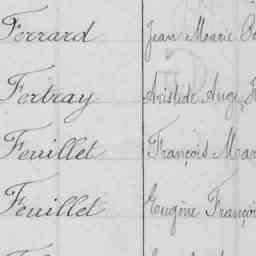 Ferrard Jean Marie
Fertray Aristide Aug.
Feuillet François Mar
Feuillet Eugène Françoi